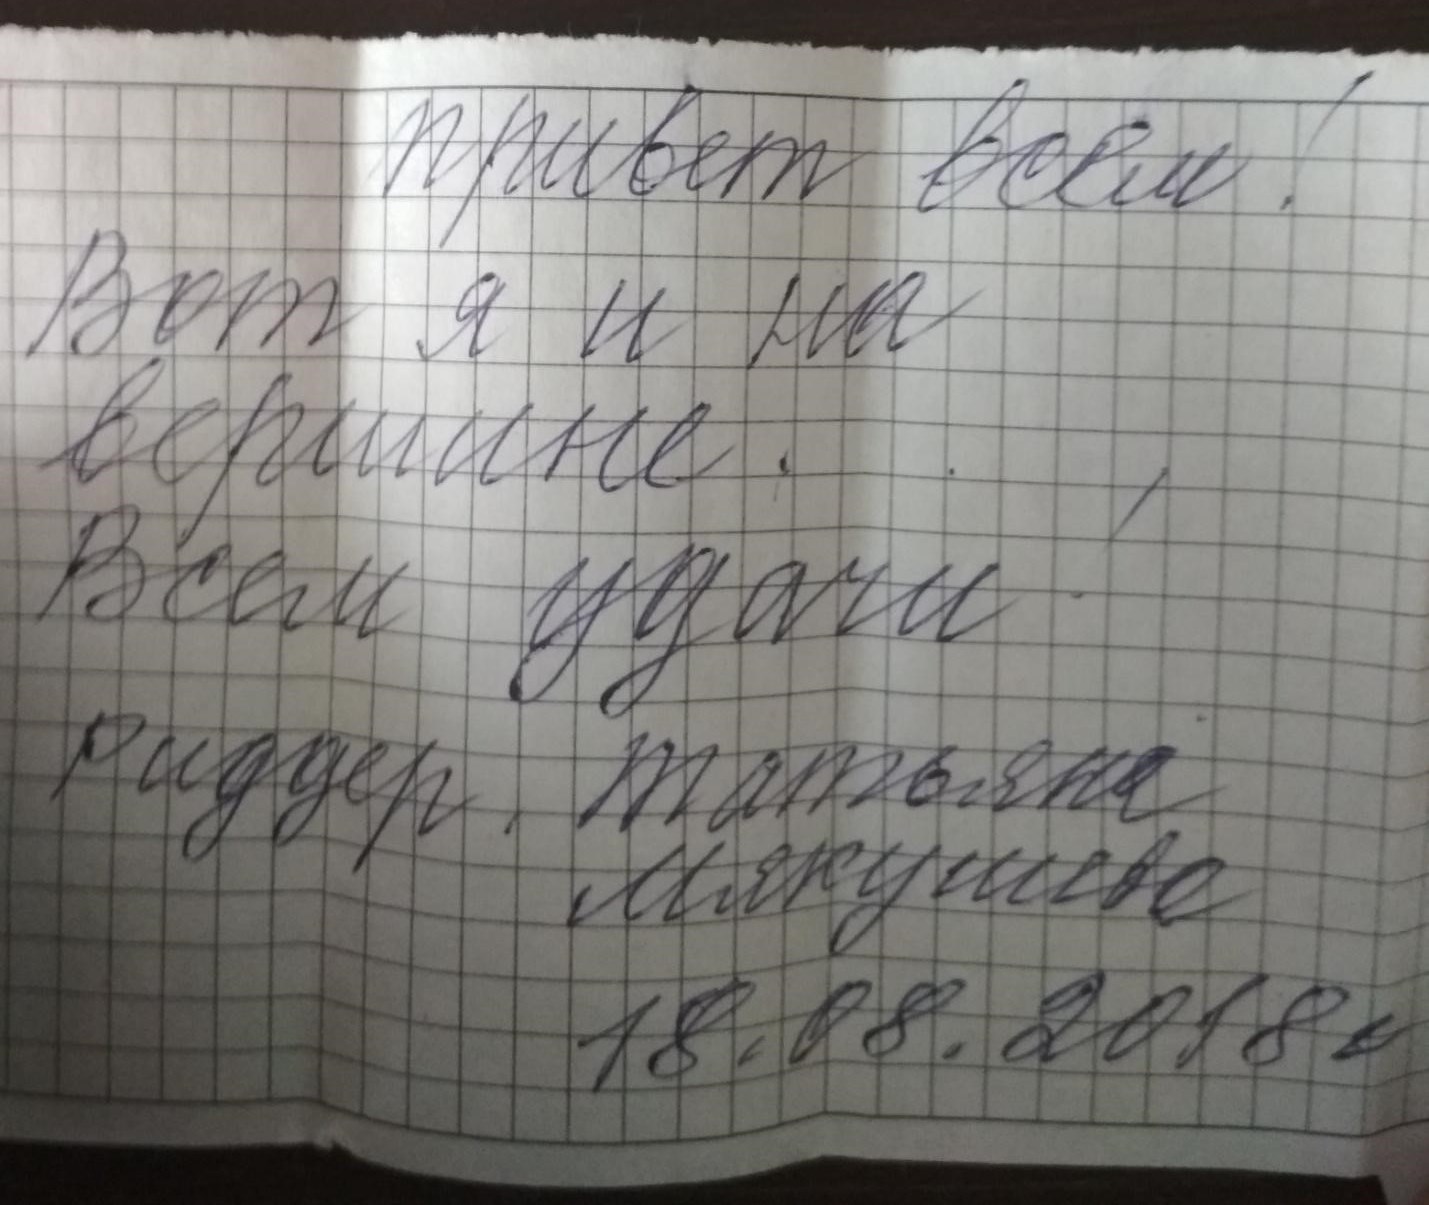 привет всем!
Вот я и на
вершине.
Всем удачи!
Риддер. Татьяна
Мякушева
18.08.2018г